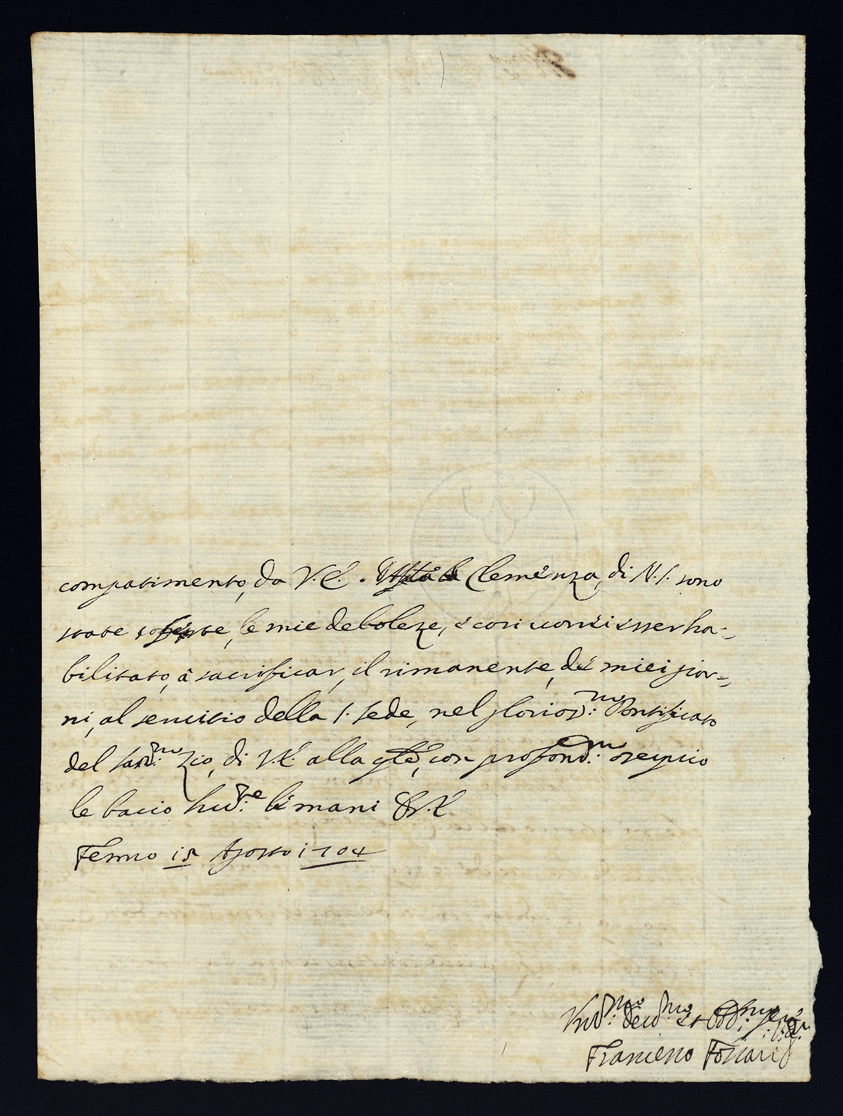 compatimento, da V. E. Clemenza, di N. S. sono
state le mie deboleze, e così esser ha-
bilitato, à sacrificar, il rimanente, de miei gior-
ni, al servitio della S. Sede, nel glorios:mo Pontificato
del Zio, di V. E. alla con profond:mo ossequio
le bacio hu:te le mani V. E.
Fermo 15 Agosto 1704
et
Francesco